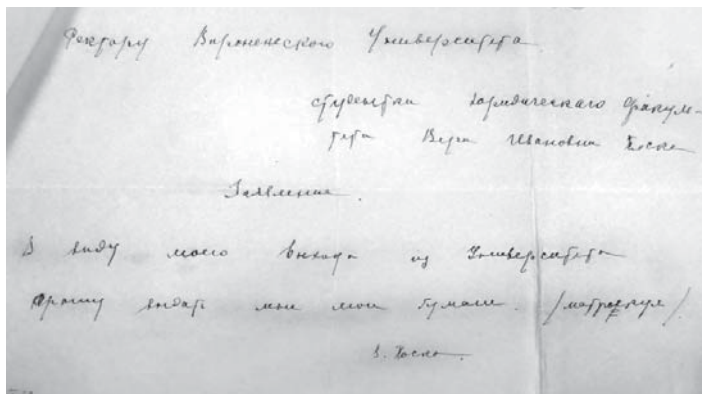 Ректору Воронежского Университета
студентки юридического факуль-
тета Вера Ивановна
Заявление.
В виду моего выхода из Университета
прошу выдать мне мои бумаги. (матрикул)
В.